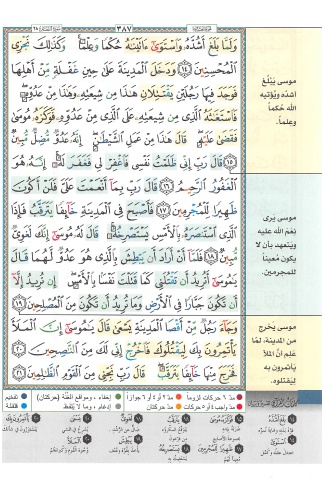 ٣٨٧
وَلَمَّا بَلَغَ أَشُدَّهُۥ وَٱسْتَوَىٰٓ ءَاتَيْنَٰهُ حُكْمًا وَعِلْمًا ۚ وَكَذَٰلِكَ نَجْزِى
ٱلْمُحْسِنِينَ ١٤ وَدَخَلَ ٱلْمَدِينَةَ عَلَىٰ حِينِ غَفْلَةٍ مِّنْ أَهْلِهَا
فَوَجَدَ فِيهَا رَجُلَيْنِ يَقْتَتِلَانِ هَٰذَا مِن شِيعَتِهِۦ وَهَٰذَا مِنْ عَدُوِّهِۦ ۖ
فَٱسْتَغَٰثَهُ ٱلَّذِى مِن شِيعَتِهِۦ عَلَى ٱلَّذِى مِنْ عَدُوِّهِۦ فَوَكَزَهُۥ مُوسَىٰ
فَقَضَىٰ عَلَيْهِ ۖ قَالَ هَٰذَا مِنْ عَمَلِ ٱلشَّيْطَٰنِ ۖ إِنَّهُۥ عَدُوٌّ مُّضِلٌّ مُّبِينٌ
١٥ قَالَ رَبِّ إِنِّى ظَلَمْتُ نَفْسِى فَٱغْفِرْ لِى فَغَفَرَ لَهُۥٓ ۚ إِنَّهُۥ هُوَ
ٱلْغَفُورُ ٱلرَّحِيمُ ١٦ قَالَ رَبِّ بِمَآ أَنْعَمْتَ عَلَىَّ فَلَنْ أَكُونَ
ظَهِيرًا لِّلْمُجْرِمِينَ ١٧ فَأَصْبَحَ فِى ٱلْمَدِينَةِ خَآئِفًا يَتَرَقَّبُ فَإِذَا
ٱلَّذِى ٱسْتَنصَرَهُۥ بِٱلْأَمْسِ يَسْتَصْرِخُهُۥ ۚ قَالَ لَهُۥ مُوسَىٰٓ إِنَّكَ لَغَوِىٌّ
مُّبِينٌ ١٨ فَلَمَّآ أَنْ أَرَادَ أَن يَبْطِشَ بِٱلَّذِى هُوَ عَدُوٌّ لَّهُمَا قَالَ
يَٰمُوسَىٰٓ أَتُرِيدُ أَن تَقْتُلَنِى كَمَا قَتَلْتَ نَفْسًۢا بِٱلْأَمْسِ ۖ إِن تُرِيدُ إِلَّآ
أَن تَكُونَ جَبَّارًا فِى ٱلْأَرْضِ وَمَا تُرِيدُ أَن تَكُونَ مِنَ ٱلْمُصْلِحِينَ ١٩
وَجَآءَ رَجُلٌ مِّنْ أَقْصَا ٱلْمَدِينَةِ يَسْعَىٰ قَالَ يَٰمُوسَىٰٓ إِنَّ ٱلْمَلَأَ
يَأْتَمِرُونَ بِكَ لِيَقْتُلُوكَ فَٱخْرُجْ إِنِّى لَكَ مِنَ ٱلنَّٰصِحِينَ ٢٠
فَخَرَجَ مِنْهَا خَآئِفًا يَتَرَقَّبُ ۖ قَالَ رَبِّ نَجِّنِى مِنَ ٱلْقَوْمِ ٱلظَّٰلِمِينَ ٢١
موسى يَبْلُغ
اشده ويُؤتيه
الله حُكماً
وعِلماً.
موسى يرى
نِعَمَ الله عليه
ويتعهد بأن لا
يكون مُعيناً
للمجرمين.
موسى يخرج
من المدينة، لمّا
عَلِمَ أنَّ الملأ
يأتمرون به
ليقتلوه.
مدّ ٦ حركات لزوماً
مدّ ٢ أو ٤ أو ٦ جوازاً
إخفاء، ومواقع الغُنَّة (حركتان)
تفخيم
مدّ واجب ٤ أو ٥ حركات
مدّ حركتان
إدغام، وما لا يُلفَظ
قلقلة